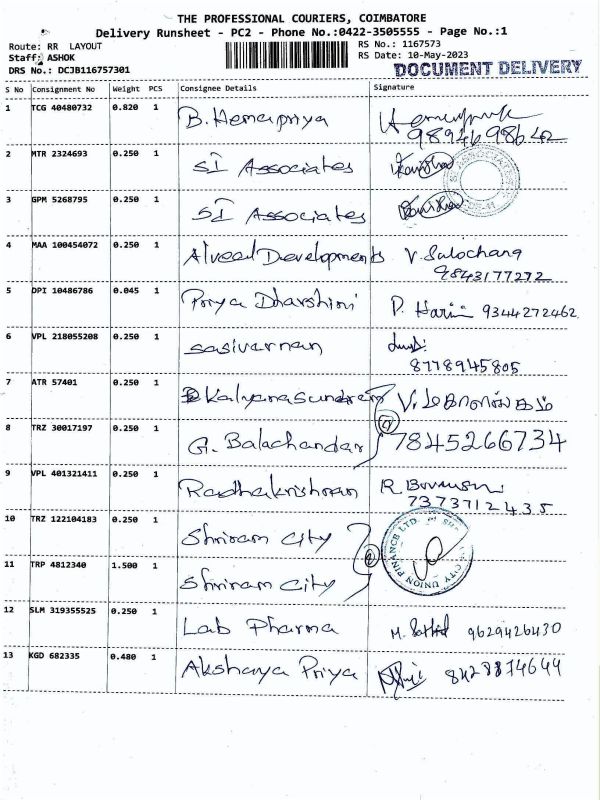 THE PROFESSIONAL COURIERS, COIMBATORE
Delivery Runsheet - PC2 - Phone No.:0422-3505555 - Page No.:1
Route: RR LAYOUT
RS No.: 1167573
Staff: ASHOK
RS Date: 10-May-2023
DRS No.: DCJB116757301
DOCUMENT DELIVERY
S No Consignment No Weight PCS Consignee Details Signature
1 TCG 40480732 0.820 1 B. Hemapriya
9894698642
2 MTR 2324693 0.250 1 SI Associates
3 GPM 5268795 0.250 1 SI Associates
4 MAA 100454072 0.250 1 Alveed Developments V. Sulochana
9843177272
5 DPI 10486786 0.045 1 Priya Dharshini P. Harini 9344272462
6 VPL 218055208 0.250 1 sasivarnan
8778945805
7 ATR 57401 0.250 1 Kalyanasundram
8 TRZ 30017197 0.250 1 G. Balachandar 7845266734
9 VPL 401321411 0.250 1 Radhakrishnan R
7373712435
10 TRZ 122104183 0.250 1 Shriram City
11 TRP 4812340 1.500 1 Shriram City
CITY UNION FINANCE LTD
12 SLM 319355525 0.250 1 Lab Pharma M. 9629426430
13 KGD 682335 0.480 1 Akshaya Priya 8428874644